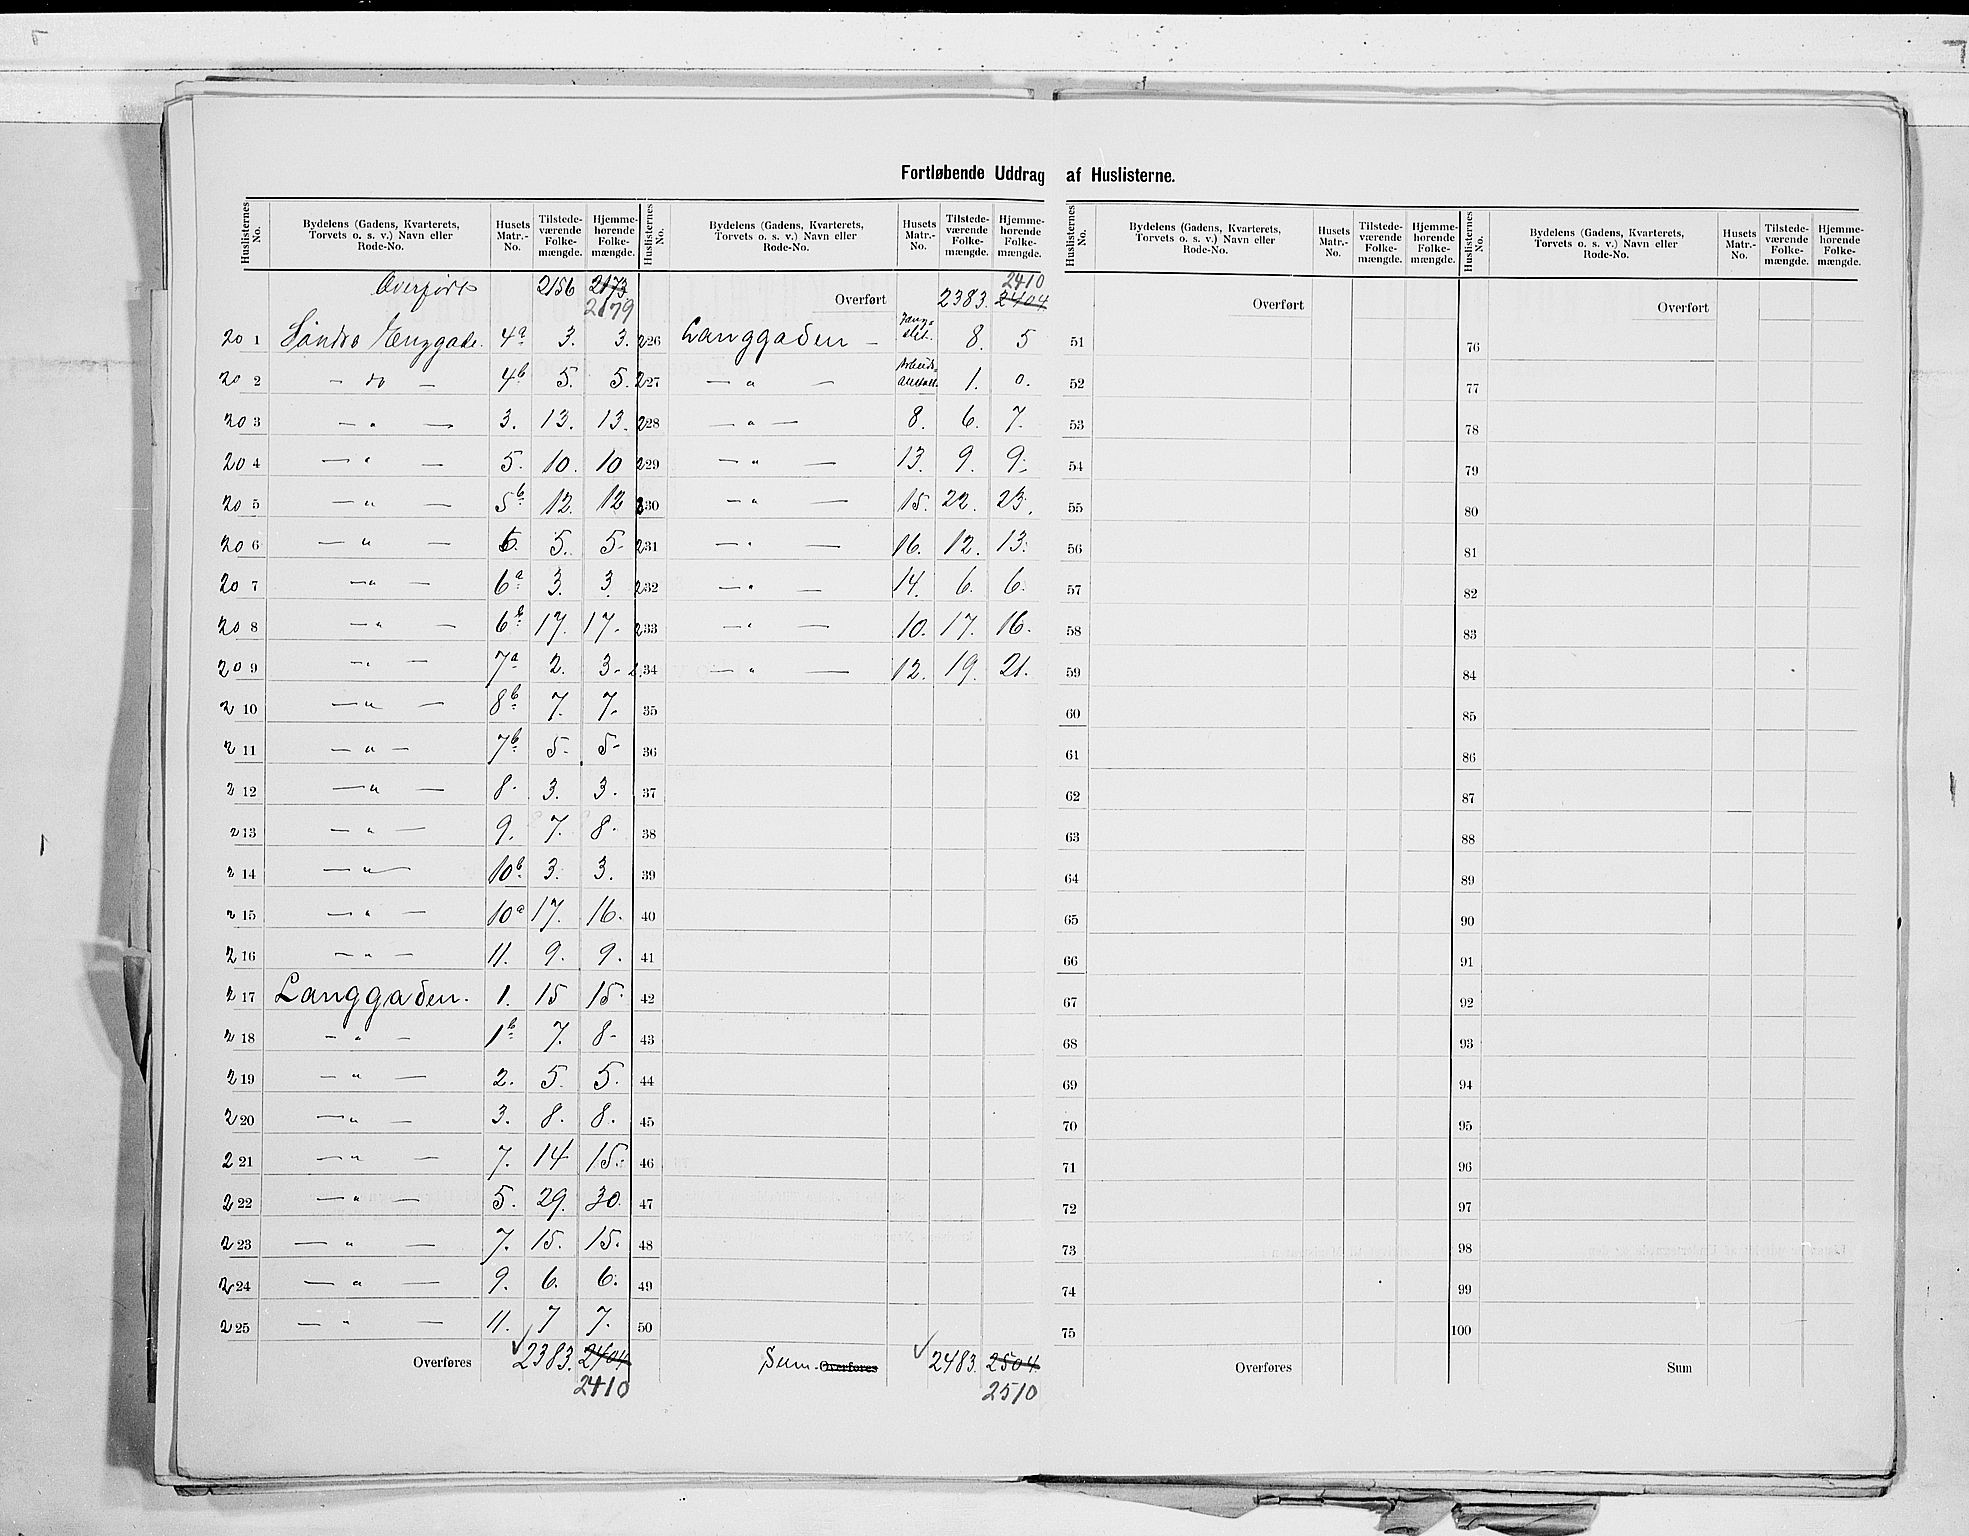 Fortløbende Uddrag af Huslisterne.
Huslisternes No. | Bydelens (Gadens, Kvarterets, Torvets o. s. v.) Navn eller Rode-No. | Husets Matr.-No. | Tilstede-værende Folke-mængde. | Hjemme-hørende Folke-mængde.
Overført 2156 2173 2179
201 Søndre Enggade. 4a 3. 3.
202 — do — 4b 5. 5.
203 — " — 3. 13. 13.
204 — " — 5. 10. 10
205 — " — 5b 12. 12
206 — " — 6. 5. 5.
207 — " — 6a 3. 3.
208 — " — 6b 17. 17.
209 — " — 7a 2. 3.
210 — " — 8b 7. 7.
211 — " — 7b 5. 5.
212 — " — 8. 3. 3.
213 — " — 9. 7. 8.
214 — " — 10b 3. 3.
215 — " — 10a 17. 16.
216 — " — 11. 9. 9.
217 Langgaden. 1. 15 15.
218 — " — 1b 7. 8.
219 — " — 2. 5. 5.
220 — " — 3. 8. 8.
221 — " — 7. 14 15.
222 — " — 5. 29. 30.
223 — " — 7. 15. 15.
224 — " — 9. 6. 6.
225 — " — 11. 7 7.
Overføres 2383. 2404 2410
Huslisternes No. | Bydelens (Gadens, Kvarterets, Torvets o. s. v.) Navn eller Rode-No. | Husets Matr.-No. | Tilstede-værende Folke-mængde. | Hjemme-hørende Folke-mængde.
Overført 2383. 2410 2404
226 Langgaden — 8. 5
227 — " — 1. 0.
228 — " — 8. 6. 7.
229 — " — 13. 9. 9.
230 — " — 15. 22. 23.
231 — " — 16. 12. 13.
232 — " — 14. 6. 6.
233 — " — 10. 17. 16.
234 — " — 12. 19. 21.
35
36
37
38
39
40
41
42
43
44
45
46
47
48
49
50
Sum. Overføres 2483. 2504 2510
Huslisternes No. | Bydelens (Gadens, Kvarterets, Torvets o. s. v.) Navn eller Rode-No. | Husets Matr.-No. | Tilstede-værende Folke-mængde. | Hjemme-hørende Folke-mængde.
Overført
51
52
53
54
55
56
57
58
59
60
61
62
63
64
65
66
67
68
69
70
71
72
73
74
75
Overføres
Huslisternes No. | Bydelens (Gadens, Kvarterets, Torvets o. s. v.) Navn eller Rode-No. | Husets Matr.-No. | Tilstede-værende Folke-mængde. | Hjemme-hørende Folke-mængde.
Overført
76
77
78
79
80
81
82
83
84
85
86
87
88
89
90
91
92
93
94
95
96
97
98
99
100
Sum